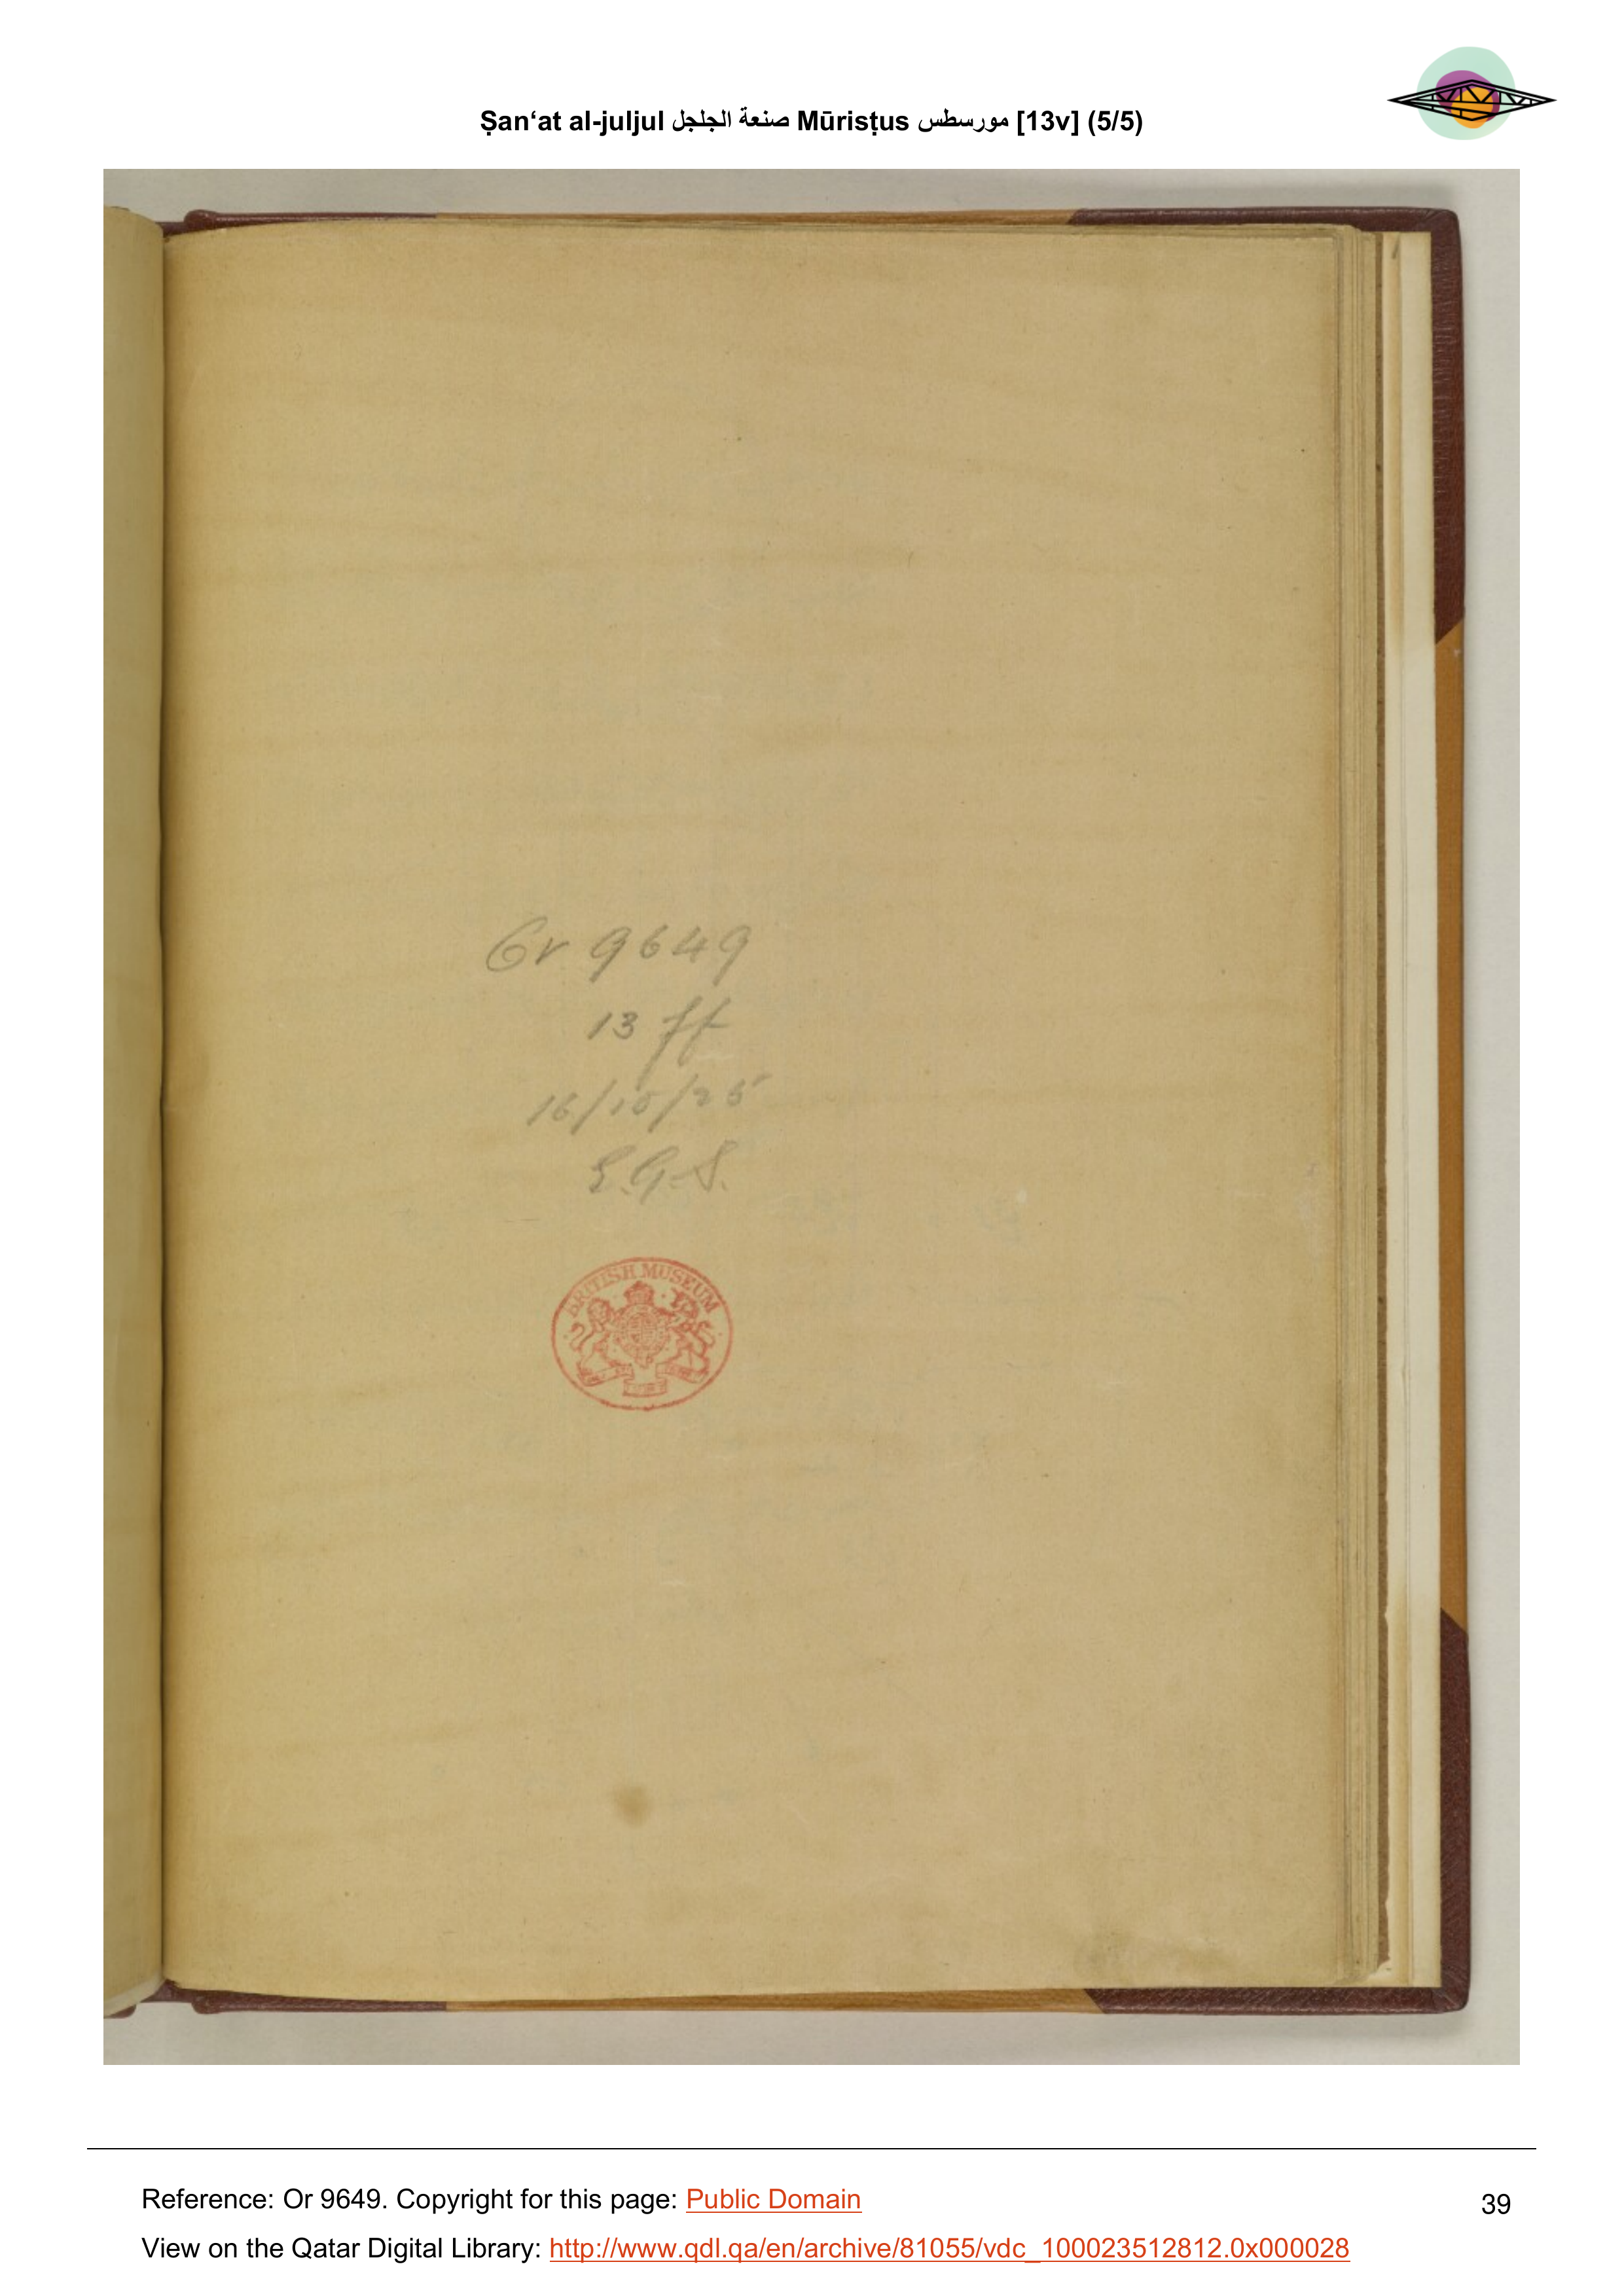 Ṣan‘at al-juljul صنعة الجلجل Mūrisṭus مورسطس [13v] (5/5)
Or 9649
13 ff
16/10/25
E.G.S.
BRITISH MUSEUM
Reference: Or 9649. Copyright for this page: Public Domain
39
View on the Qatar Digital Library: http://www.qdl.qa/en/archive/81055/vdc_100023512812.0x000028